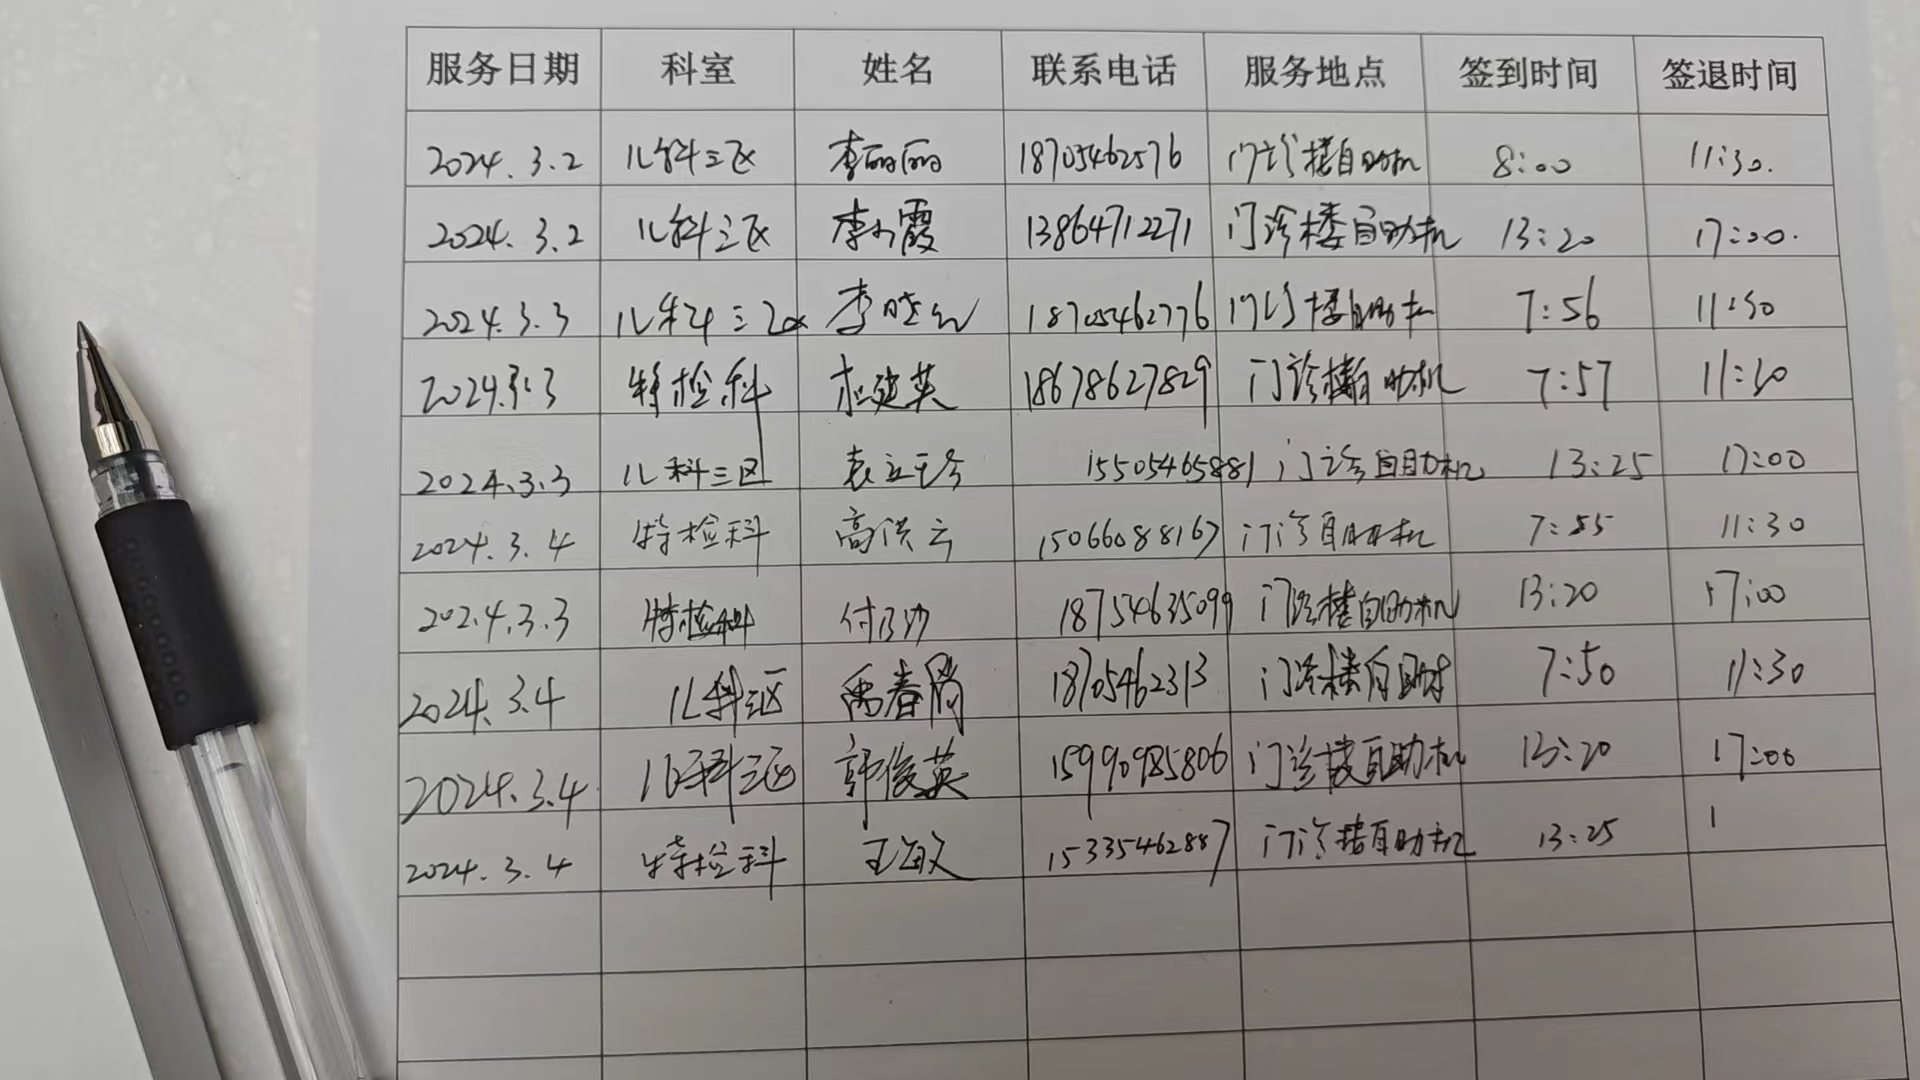 服务日期 科室 姓名 联系电话 服务地点 签到时间 签退时间
2024.3.2 儿科三区 李丽丽 18705462576 门诊楼自助机 8:00 11:30.
2024.3.2 儿科三区 李小霞 13864712271 门诊楼自助机 13:20 17:00.
2024.3.3 儿科三区 李晓红 18705462776 门诊楼自助机 7:56 11:30
2024.3.3 特检科 建英 18678627829 门诊楼自助机 7:57 11:30
2024.3.3 儿科三区 袁 15505465881 门诊自助机 13:25 17:00
2024.3.4 特检科 高洪云 15066088167 门诊自助机 7:55 11:30
2024.3.3 特检科 付 18754635099 门诊楼自助机 13:20 17:00
2024.3.4 儿科三区 春 18705462313 门诊楼自助 7:50 11:30
2024.3.4 儿科三区 郭俊英 15990985806 门诊楼自助机 13:20 17:00
2024.3.4 特检科 王敏 15335462887 门诊楼自助机 13:25 1